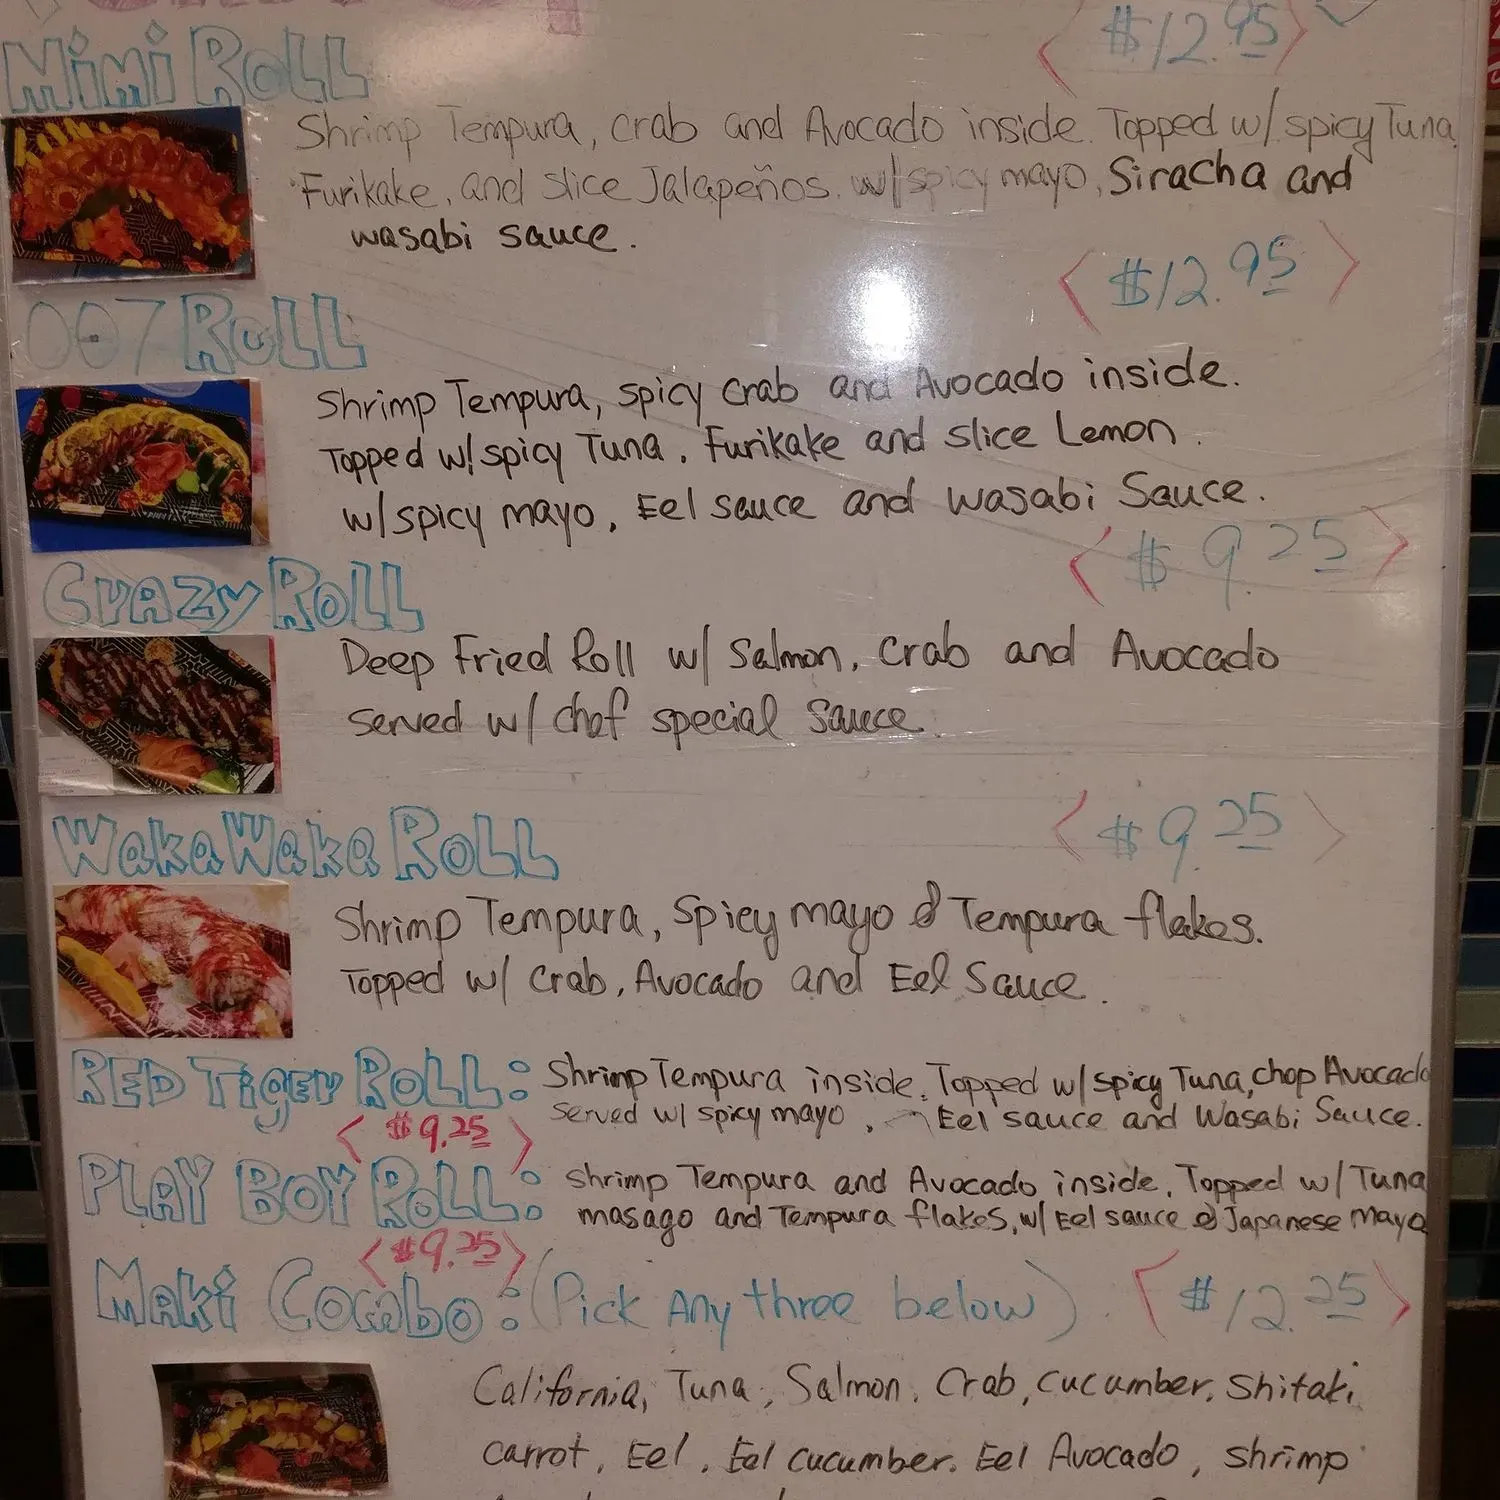 $12.95
Mimi ROLL
Shrimp Tempura, crab and Avocado inside. Topped w/ spicy Tuna
Furikake, and slice Jalapeños. w/ spicy mayo, Siracha and
wasabi sauce.
$12.95
007 ROLL
Shrimp Tempura, spicy crab and Avocado inside.
Topped w/ spicy Tuna, Furikake and slice Lemon.
w/ spicy mayo, Eel sauce and wasabi Sauce.
$9.25
Crazy ROLL
Deep Fried Roll w/ Salmon, Crab and Avocado
served w/ chef special sauce.
$9.25
Waka Waka ROLL
Shrimp Tempura, Spicy mayo & Tempura flakes.
Topped w/ crab, Avocado and Eel Sauce.
RED Tiger ROLL: Shrimp Tempura inside. Topped w/ spicy Tuna, chop Avocado
served w/ spicy mayo, Eel sauce and Wasabi Sauce.
$9.25
PLAY BOY ROLL: Shrimp Tempura and Avocado inside, Topped w/ Tuna
masago and Tempura flakes, w/ Eel sauce & Japanese mayo
$9.25
Maki Combo: (Pick Any three below) $12.25
California, Tuna, Salmon, Crab, cucumber, Shitaki
carrot, Eel, Eel cucumber. Eel Avocado, shrimp